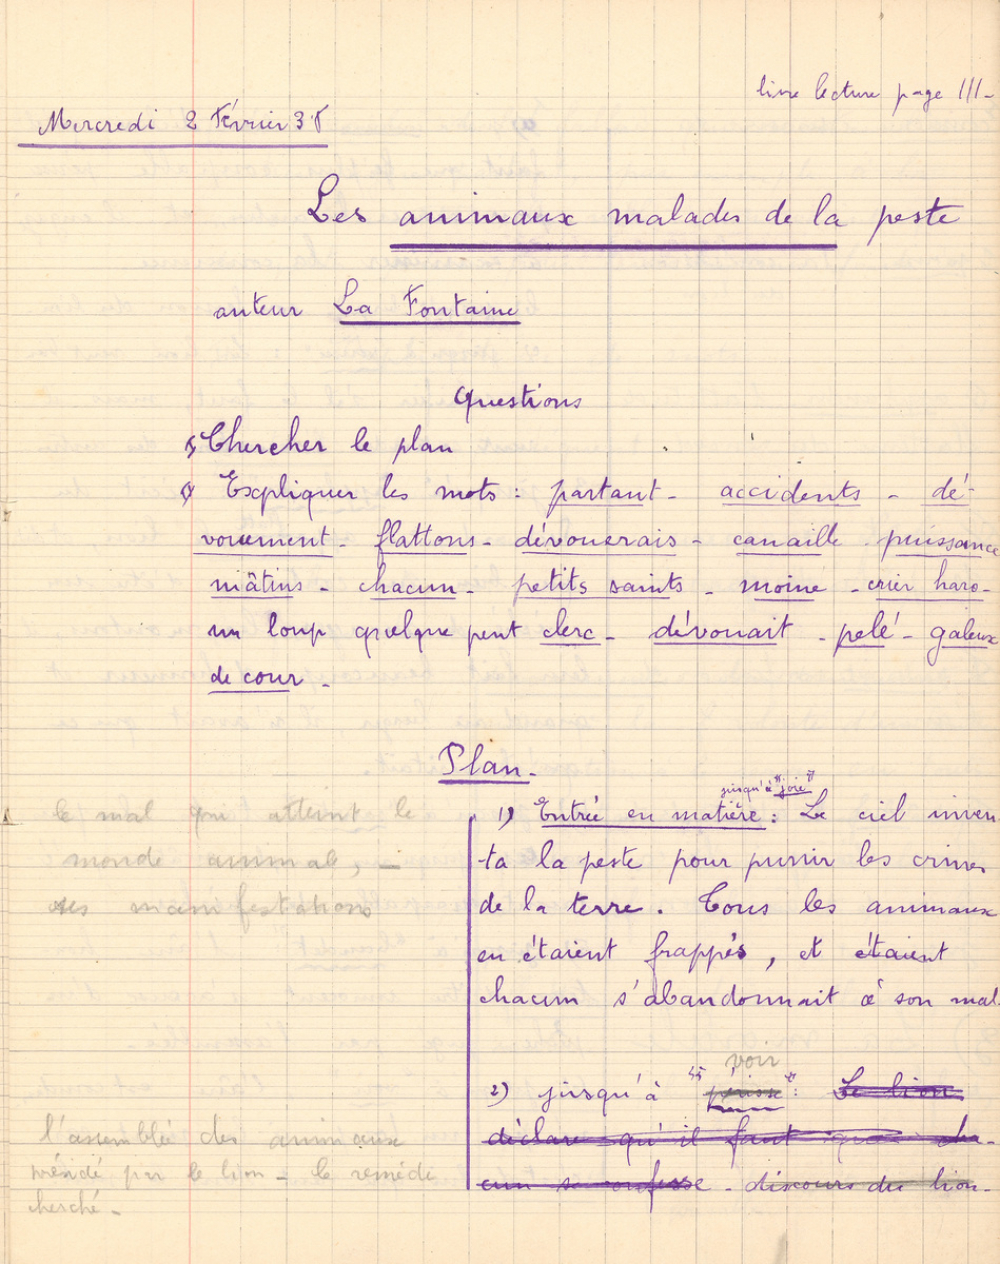 livre lecture page 111-
Mercredi 2 Février 38
Les animaux malades de la peste
auteur La Fontaine
Questions
Chercher le plan
Expliquer les mots : partant - accidents - dé-
vouement - flattons - dévouerais - canaille - puissance
mâtins - chacun - petits saints - moine - crier haro -
un loup quelque peut clerc - dévouait - pelé - galeux
de cour -
Plan -
jusqu'à "joie"
1) Entrée en matière : Le ciel inven
ta la peste pour punir les crimes
de la terre. Tous les animaux
en étaient frappés, et étaient
chacun s'abandonnait à son mal.
le mal qui atteint le
monde animal, -
ses manifestations
voir
2) jusqu'à " " : Le lion
déclare qu'il faut que cha-
cun se confesse - discours du lion -
l'assemblée des animaux
présidé par le lion - le remède
cherché -